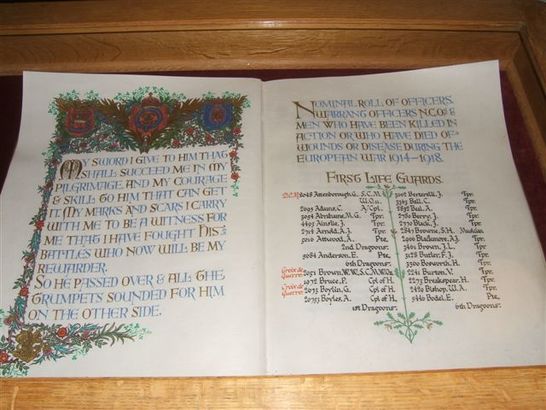 MY SWORD I GIVE TO HIM THAT
SHALL SUCCEED ME IN MY
PILGRIMAGE AND MY COURAGE
& SKILL TO HIM THAT CAN GET
IT. MY MARKS AND SCARS I CARRY
WITH ME TO BE A WITNESS FOR
ME THAT I HAVE FOUGHT HIS
BATTLES WHO NOW WILL BE MY
REWARDER.
SO HE PASSED OVER & ALL THE
TRUMPETS SOUNDED FOR HIM
ON THE OTHER SIDE.
NOMINAL ROLL OF OFFICERS,
WARRANT OFFICERS N.C.Os &
MEN WHO HAVE BEEN KILLED IN
ACTION OR WHO HAVE DIED OF
WOUNDS OR DISEASE DURING THE
EUROPEAN WAR 1914-1918.
FIRST LIFE GUARDS.
D.C.M. Attenborough, G. S.C.M.
W.O.
Adams, C. A/Cpl
Abrahams, M.G. Tpr.
Ainslie, J. Tpr.
Arnold, A.J. Tpr.
Attwood, A. Pte.
2nd Dragoons.
Anderson, E. Pte.
6th Dragoons.
Croix de Guerre. Brown, W.W.S.
Bruce, P. Cpl of H.
Croix de Guerre. Boylin, G. Cpl of H.
Boyles, A. Cpl of H.
1st Dragoons.
Tpr.
Ball, C. Tpr.
Ball, A. Tpr.
Berry, J. Tpr.
Black, J. Tpr.
Browne, S.H.
Blackmore, A.J. Tpr.
Brown, J.L. Tpr.
Butler, F.J. Tpr.
Bosworth, H. Tpr.
Burton, V. Tpr.
Breakspear, H. Tpr.
Bishop, W.A. Tpr.
Bodel, E. Pte.
6th Dragoons.